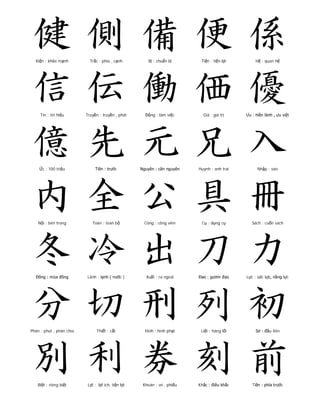 健 側 備 便 係
Kiện : khỏe mạnh Trắc : phía , cạnh Bị : chuẩn bị Tiện : tiện lợi Hệ : quan hệ
信 伝 働 価 優
Tín : tín hiệu Truyền : truyền , phát Động : làm việc Giá : giá trị Ưu : hiền lành , ưu việt
億 先 元 兄 入
Ức : 100 triệu Tiên : trước Nguyên : căn nguyên Huynh : anh trai Nhập : vào
内 全 公 具 冊
Nội : bên trong Toàn : toàn bộ Công : công viên Cụ : dụng cụ Sách : cuốn sách
冬 冷 出 刀 力
Đông : mùa đông Lãnh : lạnh ( nước ) Xuất : ra ngoài Đao : gươm đao Lực : sức lực, năng lực
分 切 刑 列 初
Phân : phút , phân chia Thiết : cắt Hình : hình phạt Liệt : hàng lối Sơ : đầu tiên
別 利 券 刻 前
Biệt : riêng biệt Lợi : lợi ích, tiện lợi Khoán : vé , phiếu Khắc : điêu khắc Tiền : phía trước